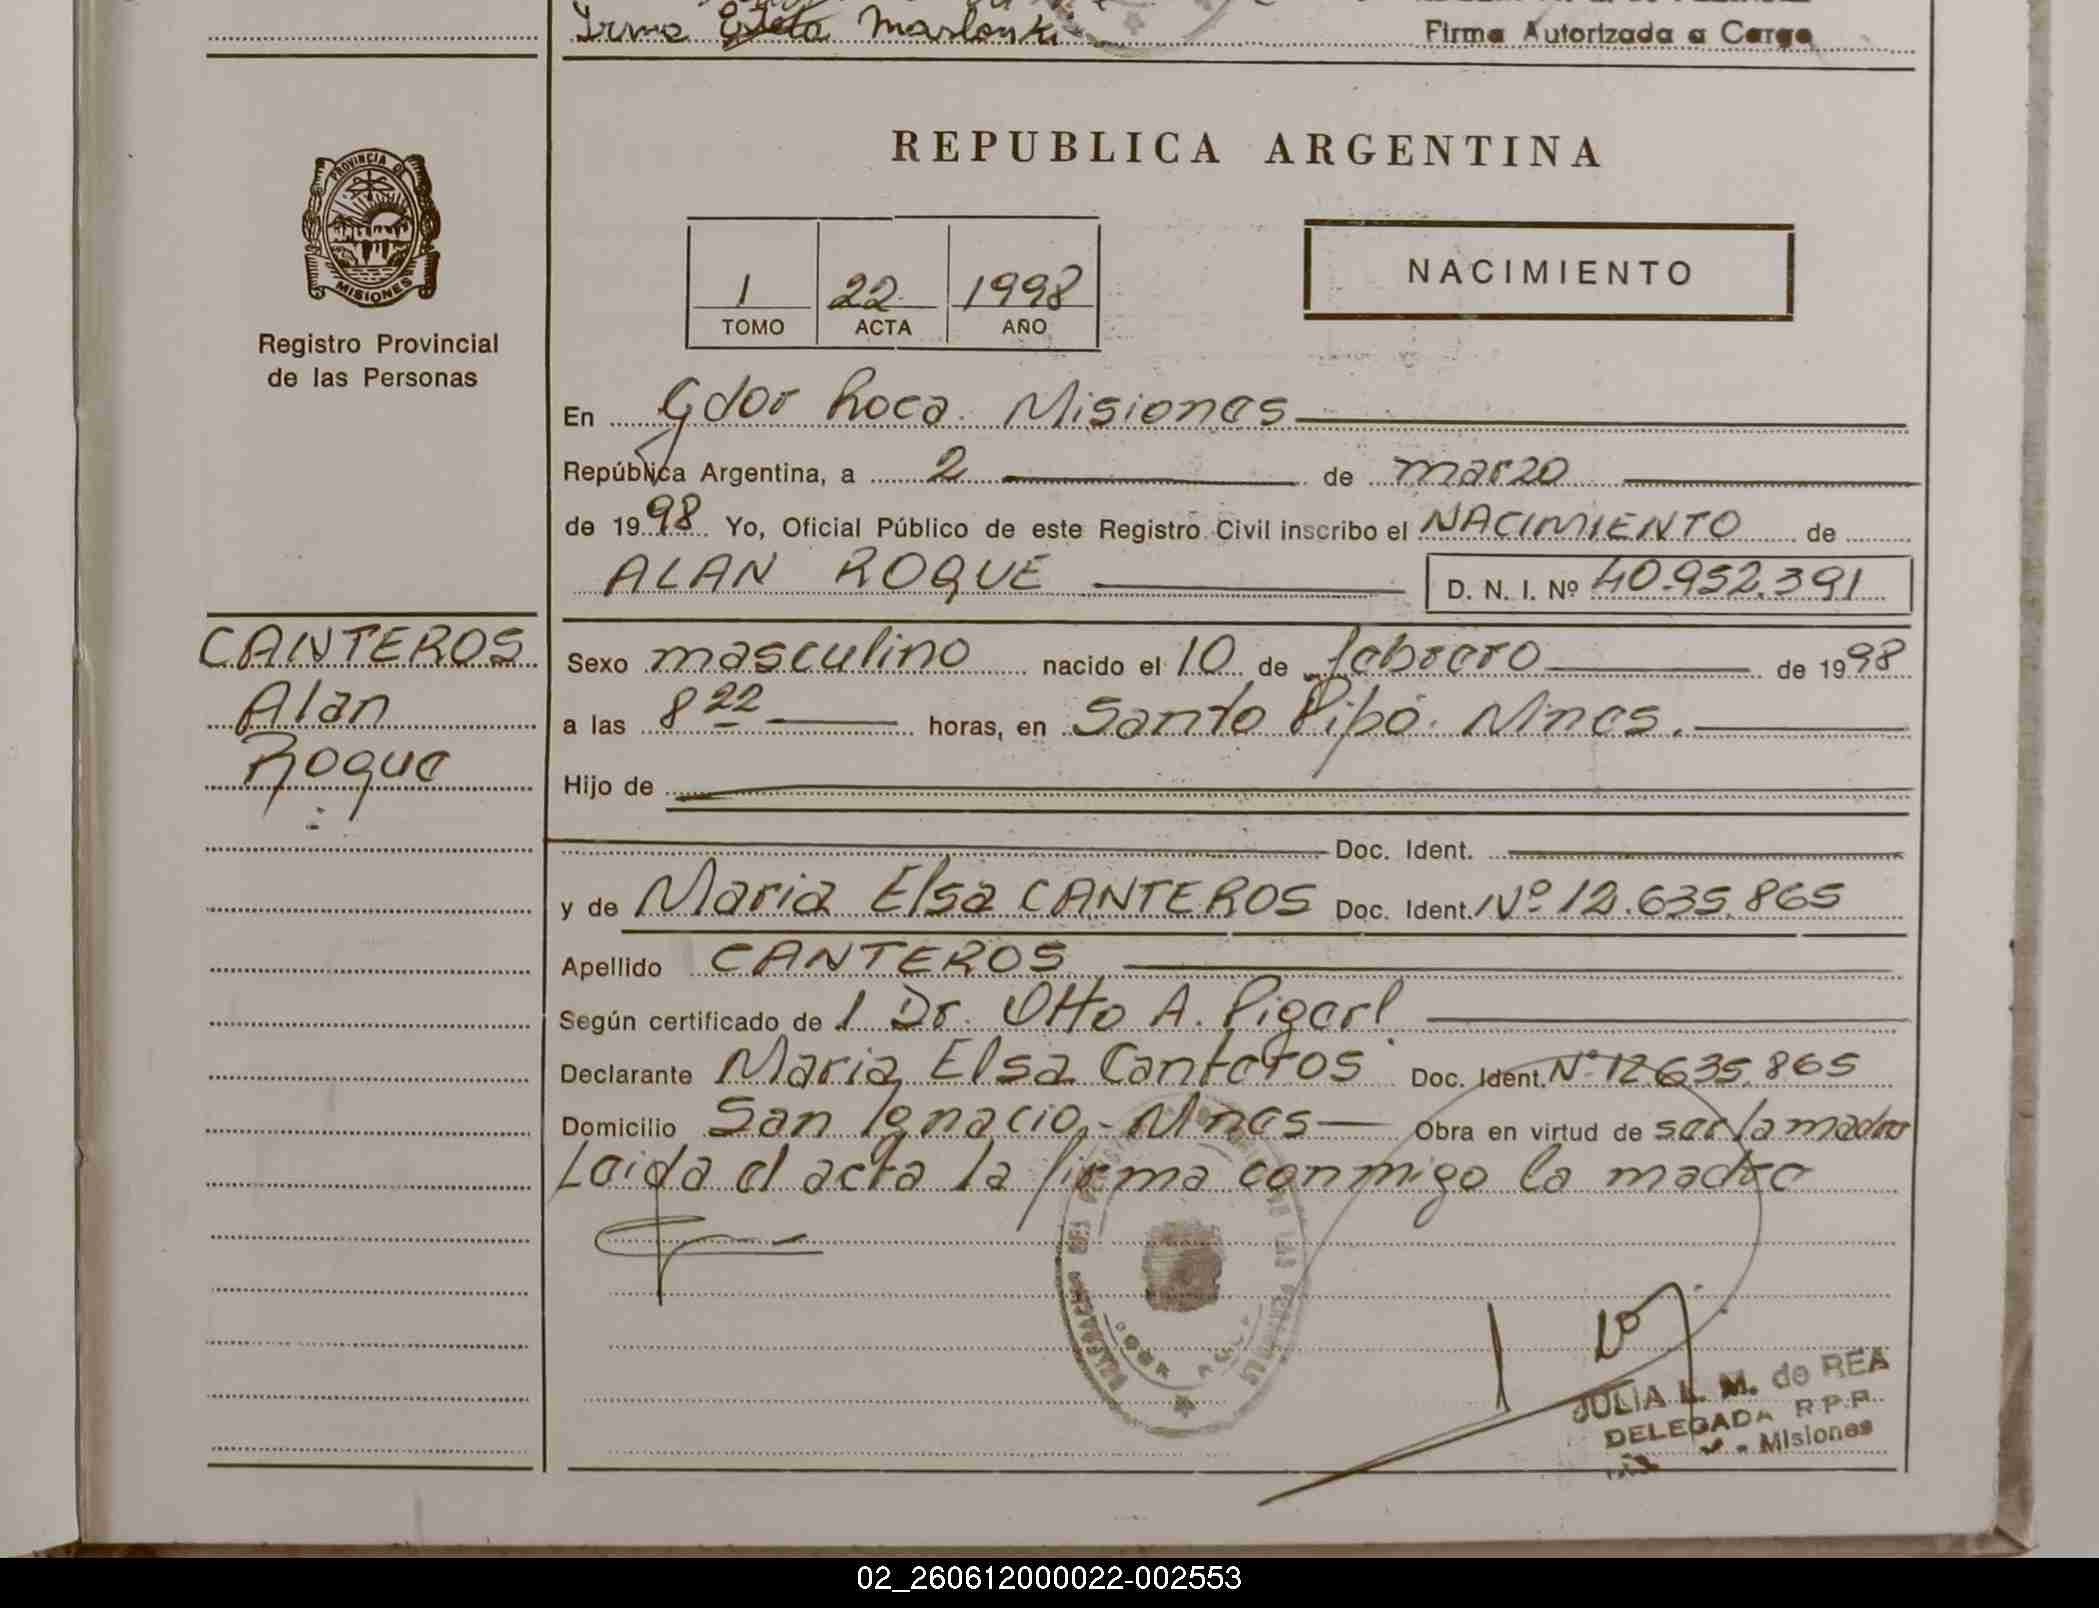 Irma Marlonski
Firma Autorizada a Cargo
PROVINCIA DE
MISIONES
Registro Provincial
de las Personas
REPUBLICA ARGENTINA
1 22 1998
TOMO ACTA AÑO
NACIMIENTO
En Gdor Roca. Misiones
República Argentina, a 2 de marzo
de 1998 Yo, Oficial Público de este Registro Civil inscribo el NACIMIENTO de
ALAN ROQUE D. N. I. Nº 40.952.391
CANTEROS
Alan
Roque
Sexo masculino nacido el 10 de febrero de 1998
a las 8 22 horas, en Santo Pipó. Mnes.
Hijo de
Doc. Ident.
y de Maria Elsa CANTEROS Doc. Ident. Nº 12.635.865
Apellido CANTEROS
Según certificado de 1 Dr. Otto A.
Declarante Maria Elsa Canteros Doc. Ident. Nº 12.635.865
Domicilio San Ignacio - Mnes Obra en virtud de ser la madre
Leida el acta la firma conmigo la madre
JULIA L. M. de REA
DELEGADA R.P.P.
Misiones
02_260612000022-002553